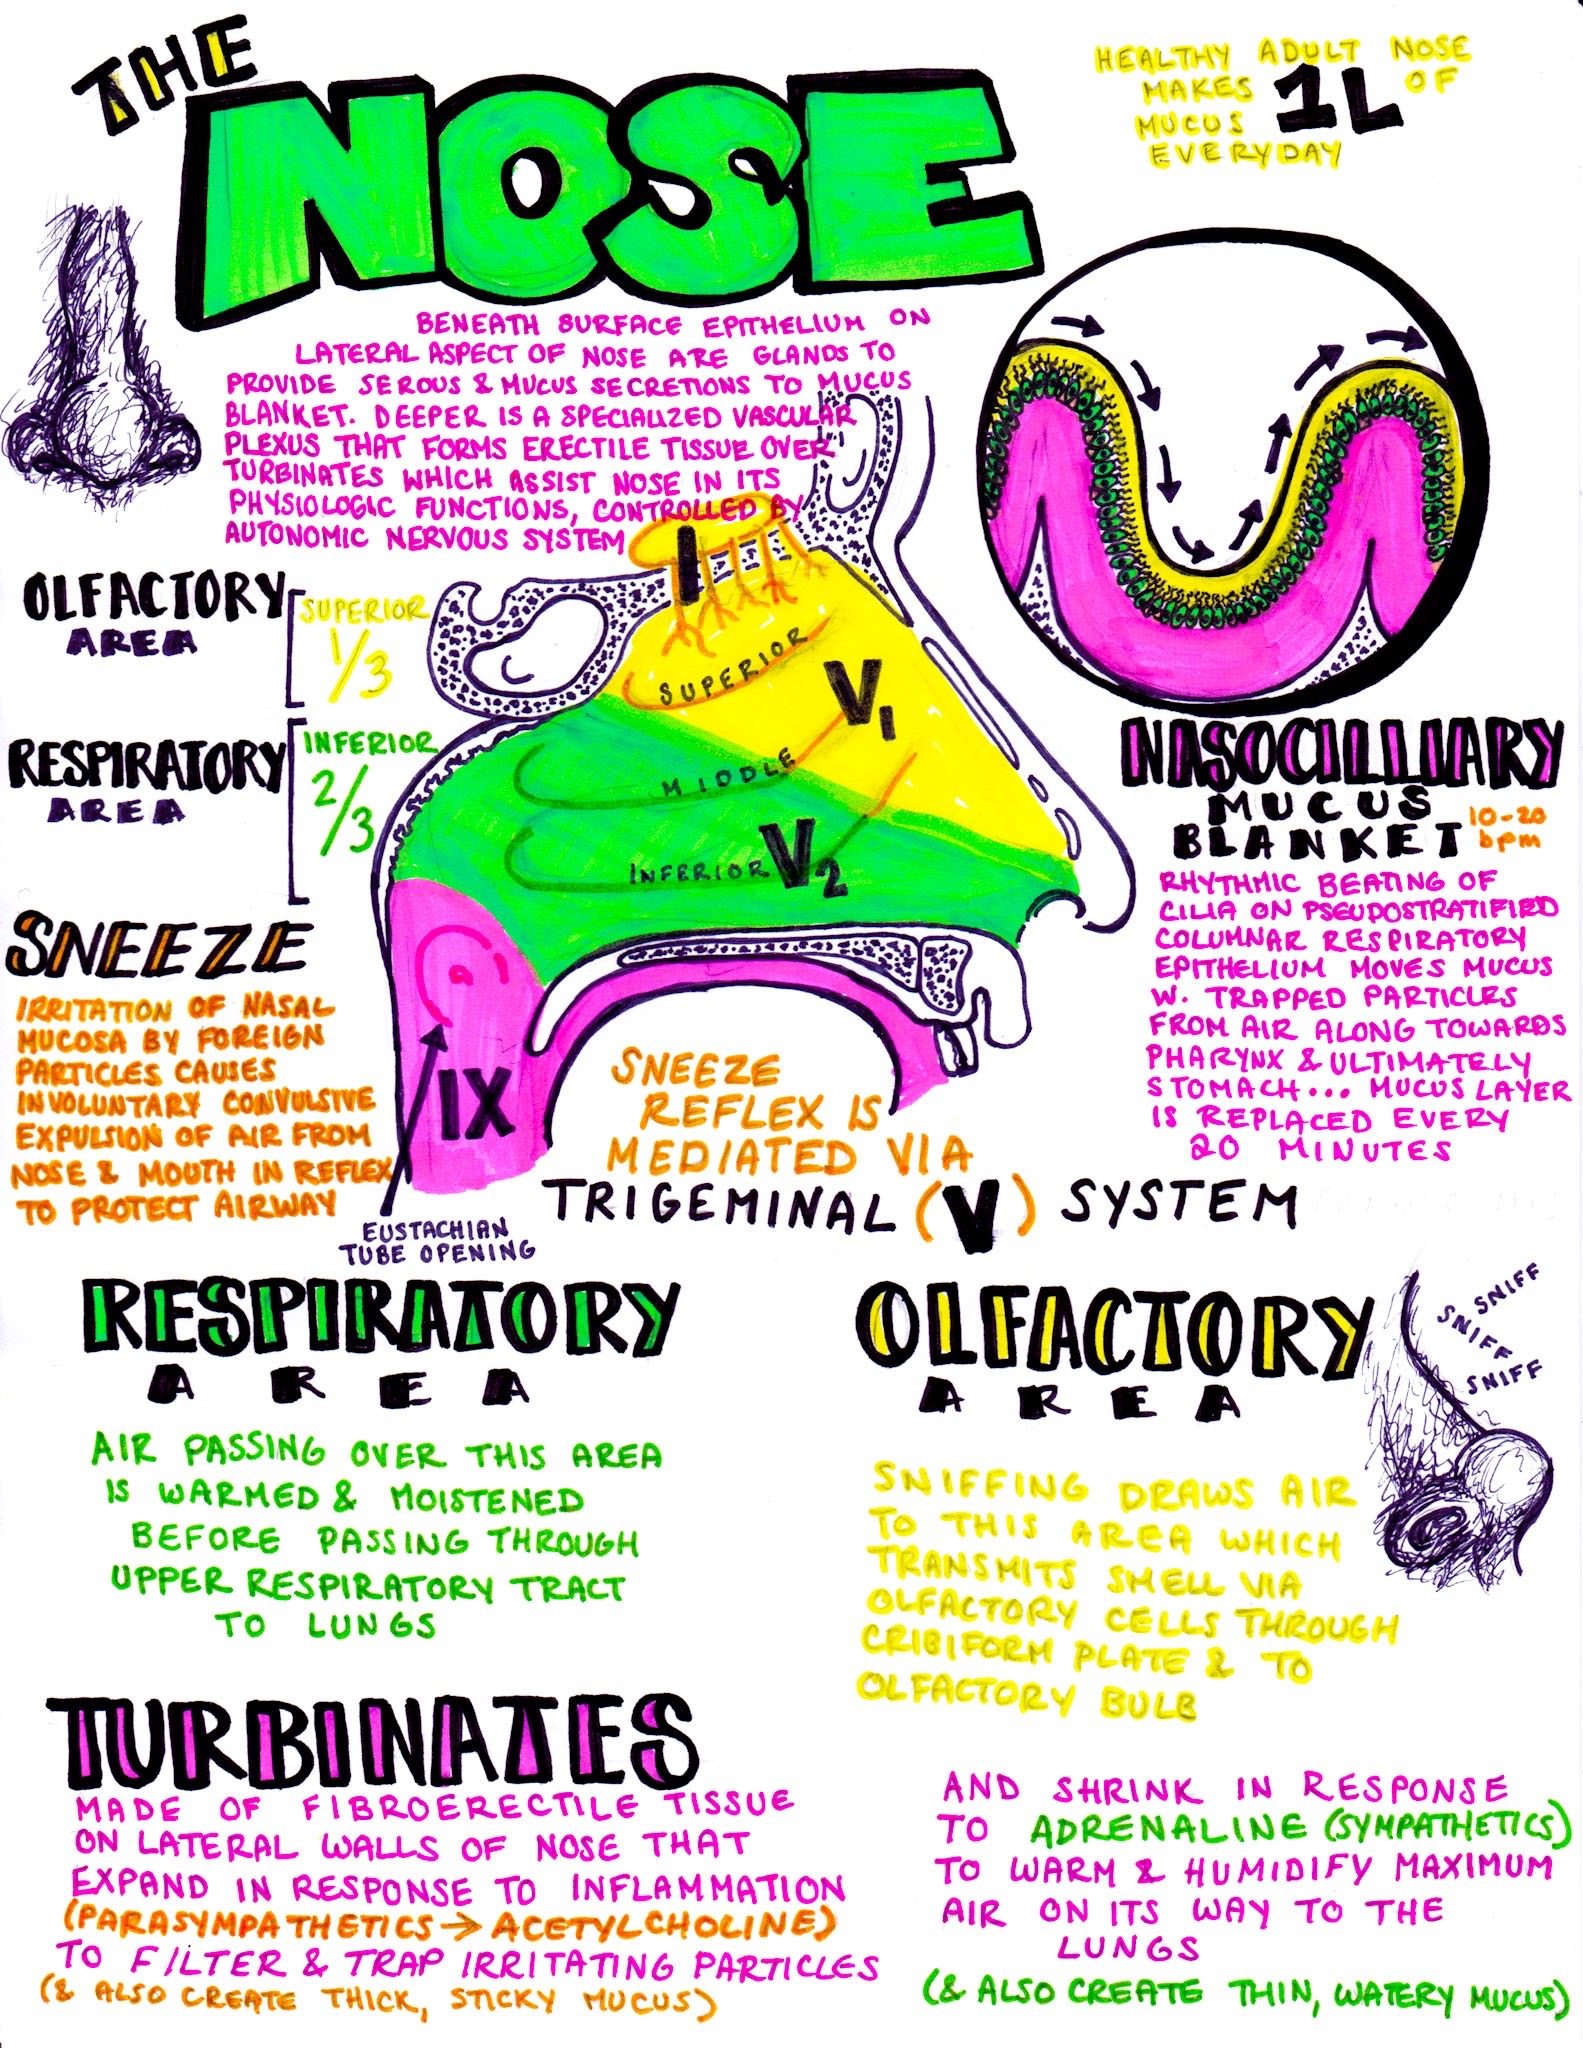 THE
NOSE
HEALTHY ADULT NOSE
MAKES 1L OF
MUCUS
EVERYDAY
BENEATH SURFACE EPITHELIUM ON
LATERAL ASPECT OF NOSE ARE GLANDS TO
PROVIDE SEROUS & MUCUS SECRETIONS TO MUCUS
BLANKET. DEEPER IS A SPECIALIZED VASCULAR
PLEXUS THAT FORMS ERECTILE TISSUE OVER
TURBINATES WHICH ASSIST NOSE IN ITS
PHYSIOLOGIC FUNCTIONS, CONTROLLED BY
AUTONOMIC NERVOUS SYSTEM
I
OLFACTORY
AREA
SUPERIOR
1/3
RESPIRATORY
AREA
INFERIOR
2/3
SUPERIOR
V1
MIDDLE
INFERIOR V2
IX
EUSTACHIAN
TUBE OPENING
NASOCILLIARY
MUCUS
BLANKET
10-20
bpm
RHYTHMIC BEATING OF
CILIA ON PSEUDOSTRATIFIED
COLUMNAR RESPIRATORY
EPITHELIUM MOVES MUCUS
W. TRAPPED PARTICLES
FROM AIR ALONG TOWARDS
PHARYNX & ULTIMATELY
STOMACH... MUCUS LAYER
IS REPLACED EVERY
20 MINUTES
SNEEZE
IRRITATION OF NASAL
MUCOSA BY FOREIGN
PARTICLES CAUSES
INVOLUNTARY CONVULSIVE
EXPULSION OF AIR FROM
NOSE & MOUTH IN REFLEX
TO PROTECT AIRWAY
SNEEZE
REFLEX IS
MEDIATED VIA
TRIGEMINAL (V) SYSTEM
RESPIRATORY
AREA
AIR PASSING OVER THIS AREA
IS WARMED & MOISTENED
BEFORE PASSING THROUGH
UPPER RESPIRATORY TRACT
TO LUNGS
OLFACTORY
AREA
SNIFF
SNIFF
SNIFF
SNIFFING DRAWS AIR
TO THIS AREA WHICH
TRANSMITS SMELL VIA
OLFACTORY CELLS THROUGH
CRIBIFORM PLATE & TO
OLFACTORY BULB
TURBINATES
MADE OF FIBROERECTILE TISSUE
ON LATERAL WALLS OF NOSE THAT
EXPAND IN RESPONSE TO INFLAMMATION
(PARASYMPATHETICS → ACETYLCHOLINE)
TO FILTER & TRAP IRRITATING PARTICLES
(& ALSO CREATE THICK, STICKY MUCUS)
AND SHRINK IN RESPONSE
TO ADRENALINE (SYMPATHETICS)
TO WARM & HUMIDIFY MAXIMUM
AIR ON ITS WAY TO THE
LUNGS
(& ALSO CREATE THIN, WATERY MUCUS)